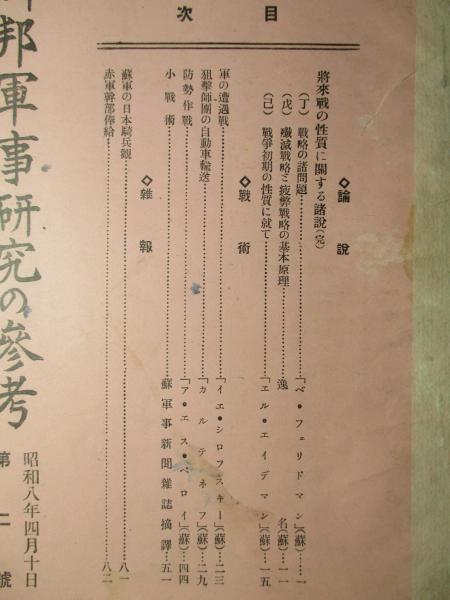 目次
◇論說
將來戰の性質に關する諸說(完)
(丁) 戰略の諸問題…………『ベ・フェリドマン』(蘇)…一
(戊) 殲滅戰略と疲弊戰略の基本原理…………逸名(蘇)…一一
(己) 戰爭初期の性質に就て…………『エル・エイデマン』(蘇)…一五
◇戰術
軍の遭遇戰…………『イエ・シロフスキー』(蘇)…二三
狙擊師團の自動車輸送…………『カルテネフ』(蘇)…二九
防勢作戰…………『ア・エス・ベロイ』(蘇)…四四
小戰術…………蘇軍事新聞雜誌摘譯…五一
◇雜報
蘇軍の日本騎兵觀…………八一
赤軍幹部俸給…………八二
邦軍事硏究の參考
昭和八年四月十日
第二號